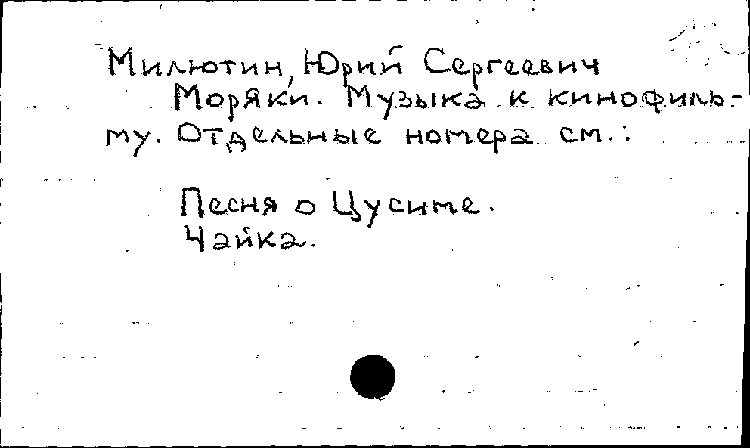 Милютин, Юрий Сергеевич
Моряки. Музыка к кинофиль-
му. Отдельные номера см.:
Песня о Цусиме.
Чайка.